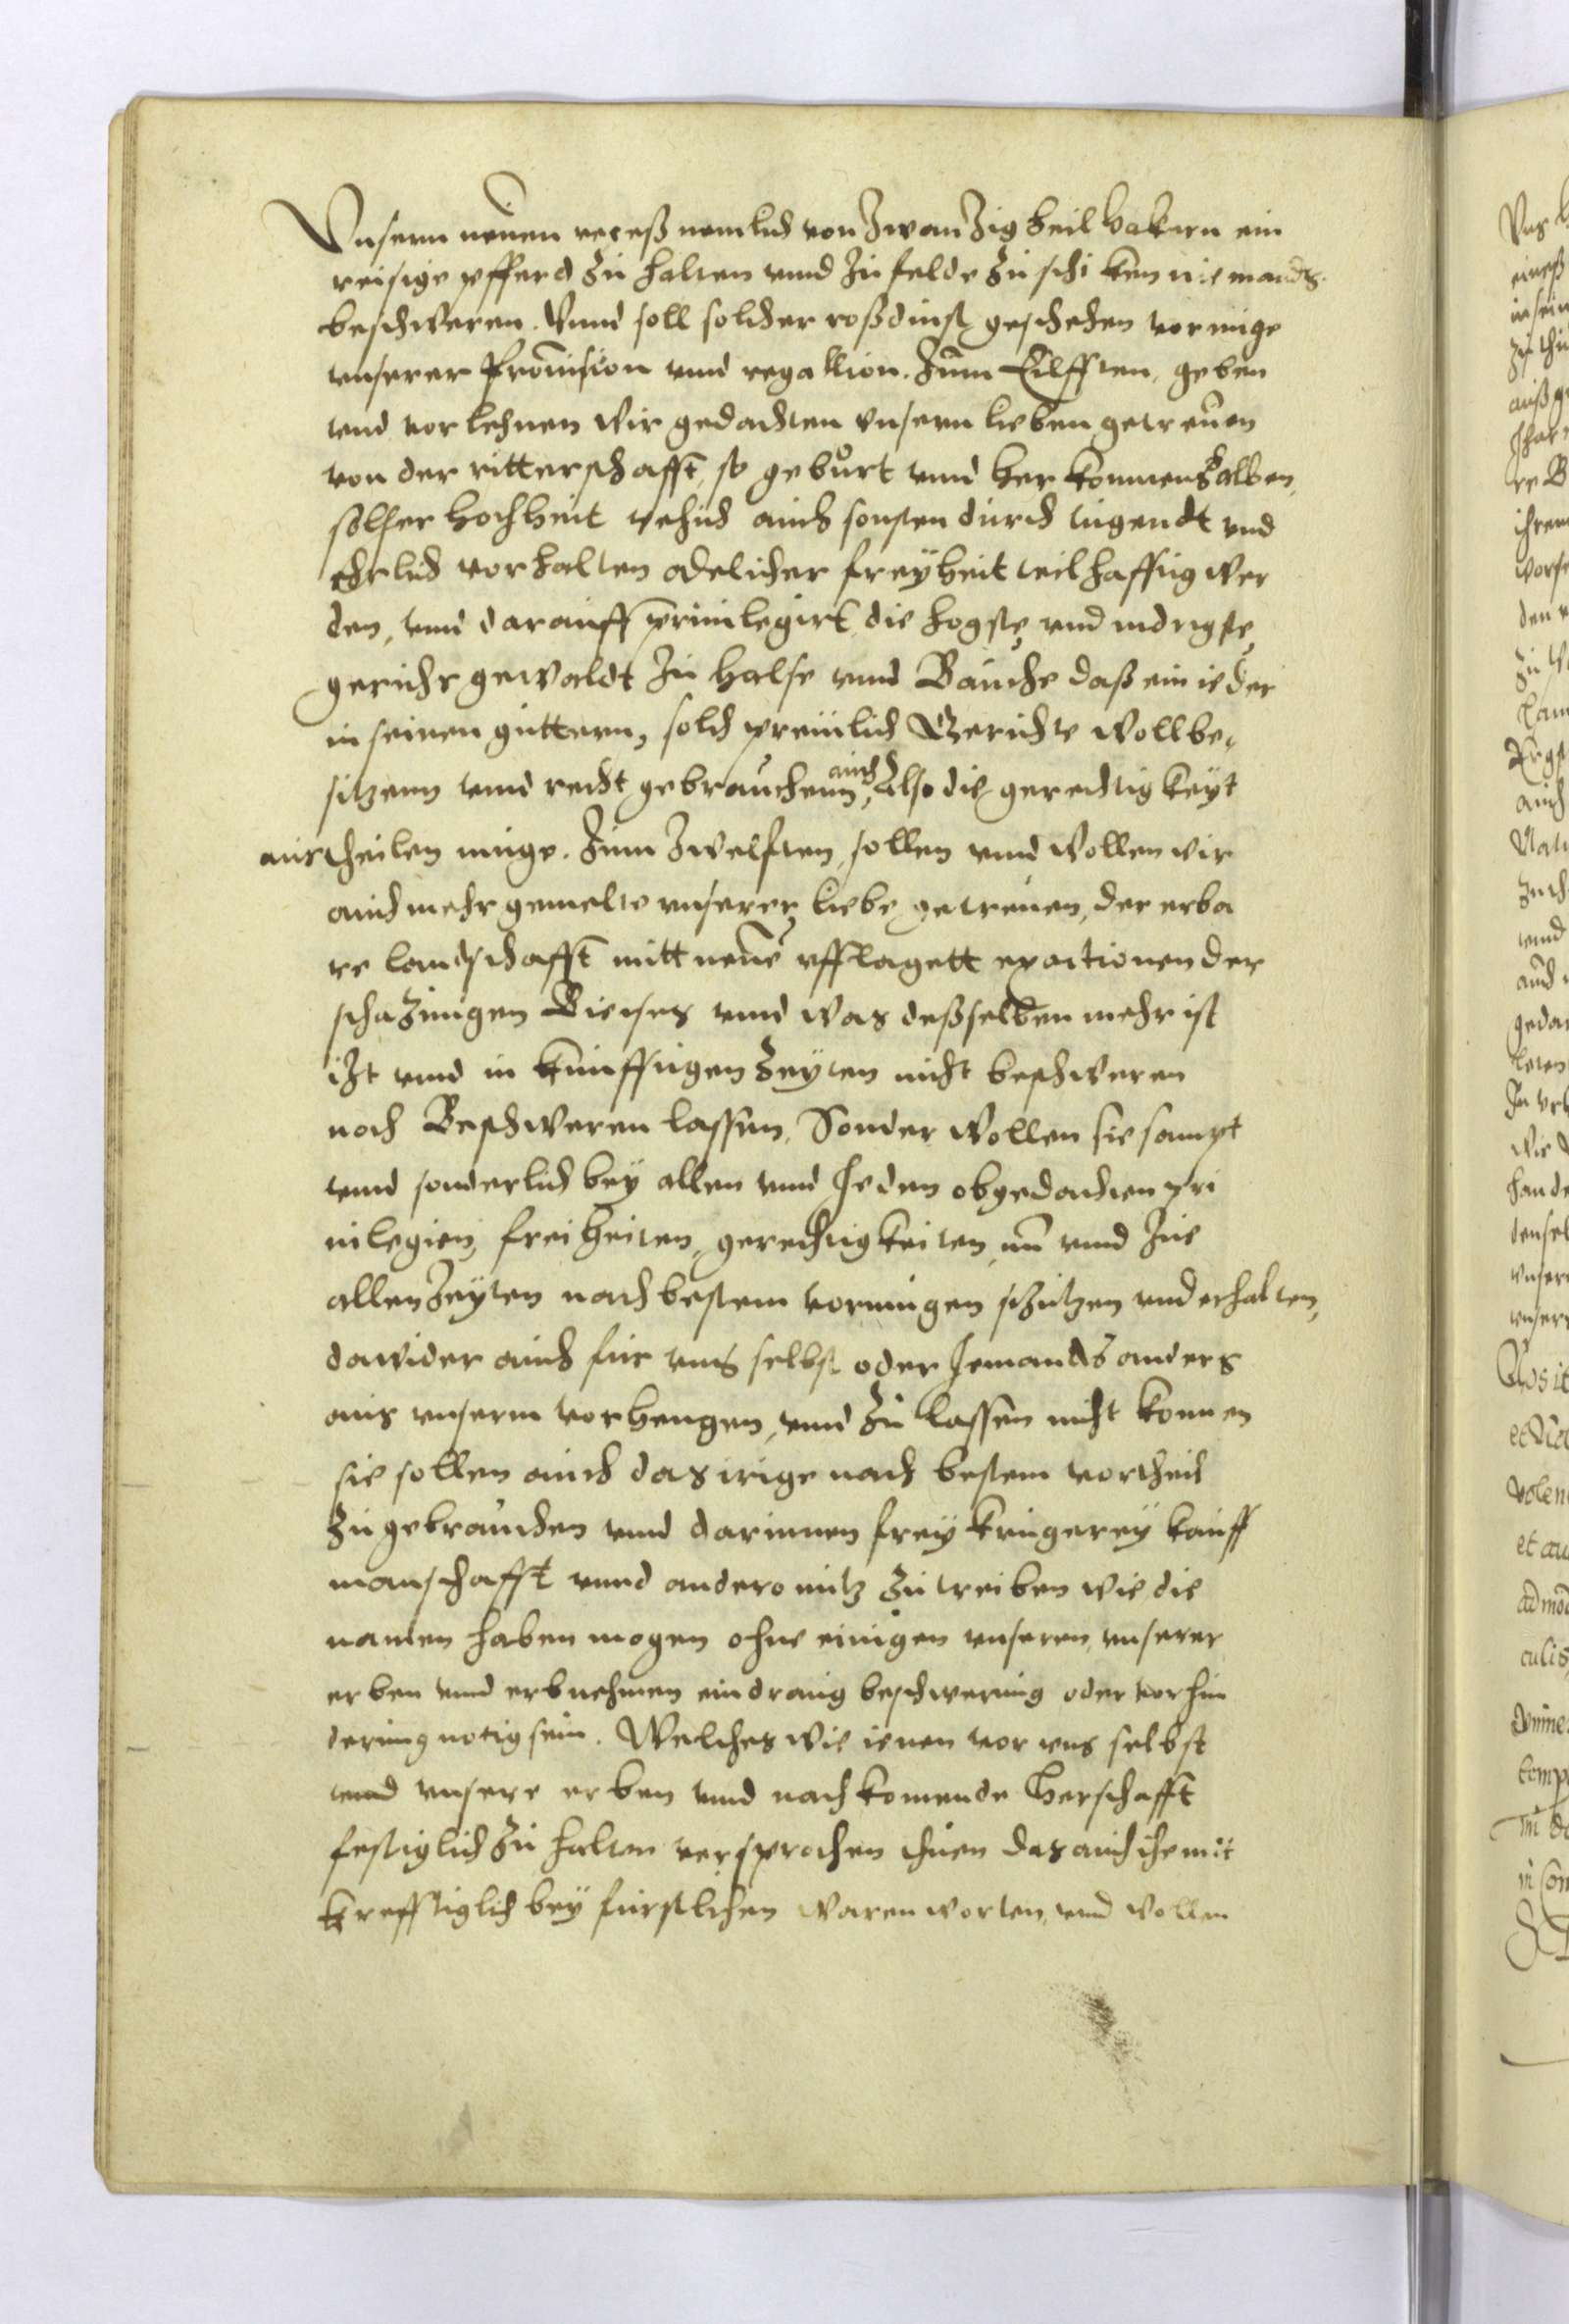 Vnsern neuen receß nemlich von Zwanzig beil hakenn ein
reisige pfferd zu halten vnnd zu felde zu schi ken nie mandts.
beschweren. Vnnd soll solcher roßdinst geschehen vormige
vnserer Promission vnnd regallion. Zum Eilfften, geben
vnnd vorlehnen Wir gedachten Vnsern lieben getreuen
von der ritterschafft, so geburt vnnd her kommens halben,
solher hochheit vehich auch sonsten durch tugendt vnd
Ehrlich vorhalten adelicher freyheit teilhafftig wer
den, vnnd darauff priuilegirt die hogste vnd nidrigste
gericht gewaldt zu halse vnnd Bauche daß ein ieder
in seinen guttern, solch preinlich Gerichte Wollbe,
sitzenn vnnd recht gebrauchenn, auch Also die gerechtig keyt
mittheilen muge. Zum Zwelften, sollen vnnd Wollen wir
auch mehr gemelte vnserer liebe getreuen, der erba
re landtschafft mitt neue vfflagett exactionen der
schazungen Bierses vnnd Was deßselben mehr ist
itzt vnnd in kunfftigen Zeyten nicht beschweren
noch Beschweren lassen, Sonder Wollen sie sampt
vnnd sonderlich bey allen vnnd Jeden obgedachten pri
uilegien, freiheiten, gerechtigkeiten, nu vnnd zue
allen Zeyten nach bestem vormugen schutzen vnd erhalten,
dawider auch fur vnns selbst oder Jemandts anders
aus vnserm vorhengen, vnnd zu lassen nicht kommen
sie sollen auch das irige nach bestem vortheil
zu gebrauchen vnnd darinnen frey krugerey kauff
manschafft vnnd andero nutz zu treiben wie die
namen haben mogen ohne einigen vnseren, vnserer
erben vnnd erbnehmen eindrang beschwerung oder vorhin
derung notig sein. Welches wir ienen vor vns selbst
vnnd vnsere erben vnnd nachkomende Herschafft
festiglich zu halten versprochen thuen das auch hiemit
krefftiglich bey furstlichen waren worten, vnnd wollen